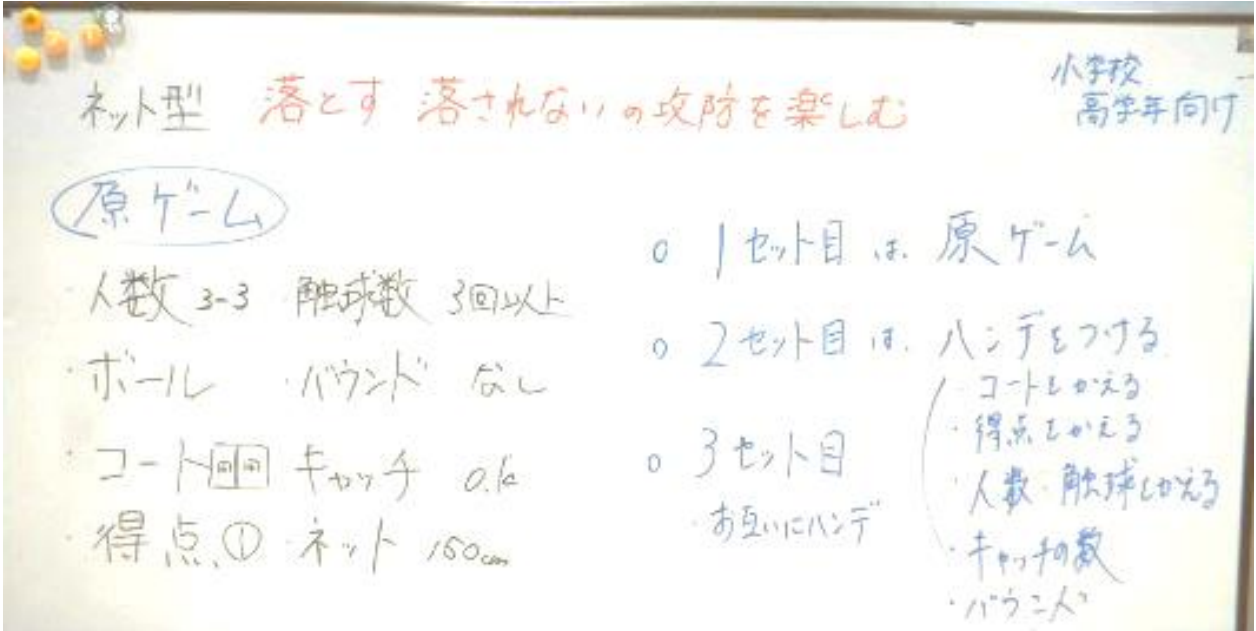 ネット型 落とす 落されないの攻防を楽しむ
小学校
高学年向け
原ゲーム
・人数 3-3 触球数 3回以上
・ボール ・バウンド なし
・コート キャッチ O.K
・得点 ① ・ネット 150cm
○ 1セット目は、原ゲーム
○ 2セット目は、ハンデをつける
・コートをかえる
・得点をかえる
・人数・触球をかえる
・キャッチの数
・バウンド
○ 3セット目
・お互いにハンデ